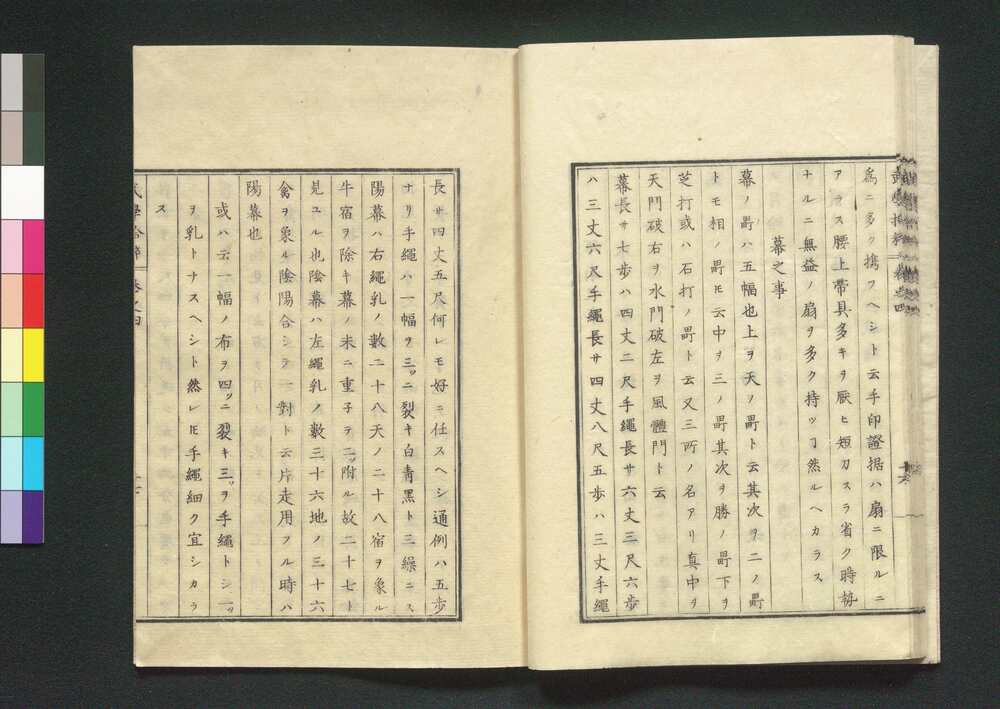 為ニ多ク携フヘシト云手印證据ハ扇ニ限ルニ
アラス腰上帯具多キヲ厭ヒ短刀スラ省ク時
ナルニ無益ノ扇ヲ多ク持ツヿ然ルヘカラス
幕之事
幕ノ畧ハ五幅也上ヲ天ノ畧ト云其次ヲ二ノ畧
トモ相ノ畧𪜈云中ヲ三ノ畧其次ヲ勝ノ畧下ヲ
芝打或ハ石打ノ畧ト云又三所ノ名アリ真中ヲ
天門破右ヲ水門破左ヲ風體門ト云
幕長サ七歩ハ四丈二尺手繩長サ六丈三尺六歩
ハ三丈六尺手繩長サ四丈八尺五歩ハ三丈手繩
長サ四丈五尺何レモ好ニ任スヘシ通例ハ五歩
ナリ手繩ハ一幅ヲ三ツニ裂キ白青黑ト三繰ニス
陽幕ハ右繩乳ノ數二十八天ノ二十八宿ヲ象ル
牛宿ヲ除キ幕ノ末ニ重子テ二ツ附ル故二十七ト
見ユル也陰幕ハ左繩乳ノ數三十六地ノ三十六
禽ヲ象ル陰陽合シテ一對ト云片走用フル時ハ
陽幕也
或ハ云一幅ノ布ヲ四ツニ裂キ三ツヲ手繩トシ一ツ
ヲ乳トナスヘシト然レ𪜈手繩細ク宜シカラ
ス